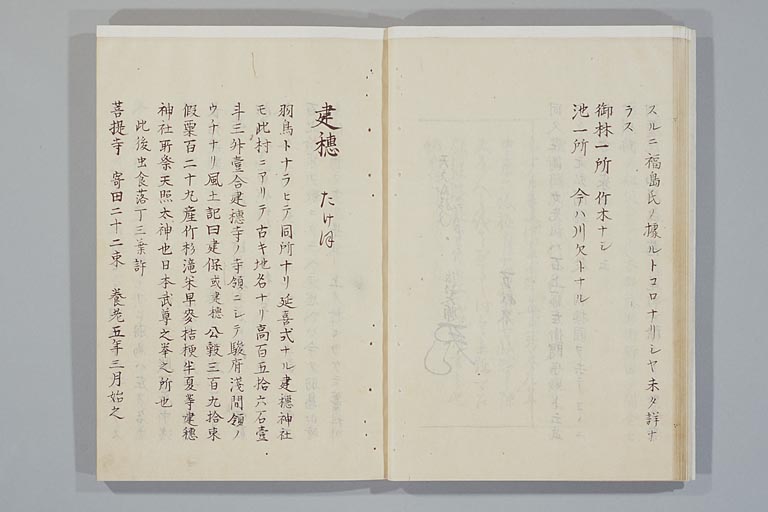 スルニ福島氏ノ據ルトコロナリシヤ未タ詳ナ
ラス
御林一所 竹木ナシ
池一所 今ハ川欠トナル
建穗 たけほ
羽鳥トナラヒテ同所ナリ延喜式ナル建穗神社
モ此村ニアリテ古キ地名ナリ高百五拾六石壹
斗三升壹合建穗寺ノ寺領ニシテ駿府浅間領ノ
ウチナリ風土記曰建保或建穗公穀三百九拾束
假粟百二十九産竹杉滝米早麥桔梗半夏等建穗
神社所祭天照太神也日本武尊之奉之所也
此後虫食落丁三葉許
菩提寺 寄田二十二束 養老五年三月始之